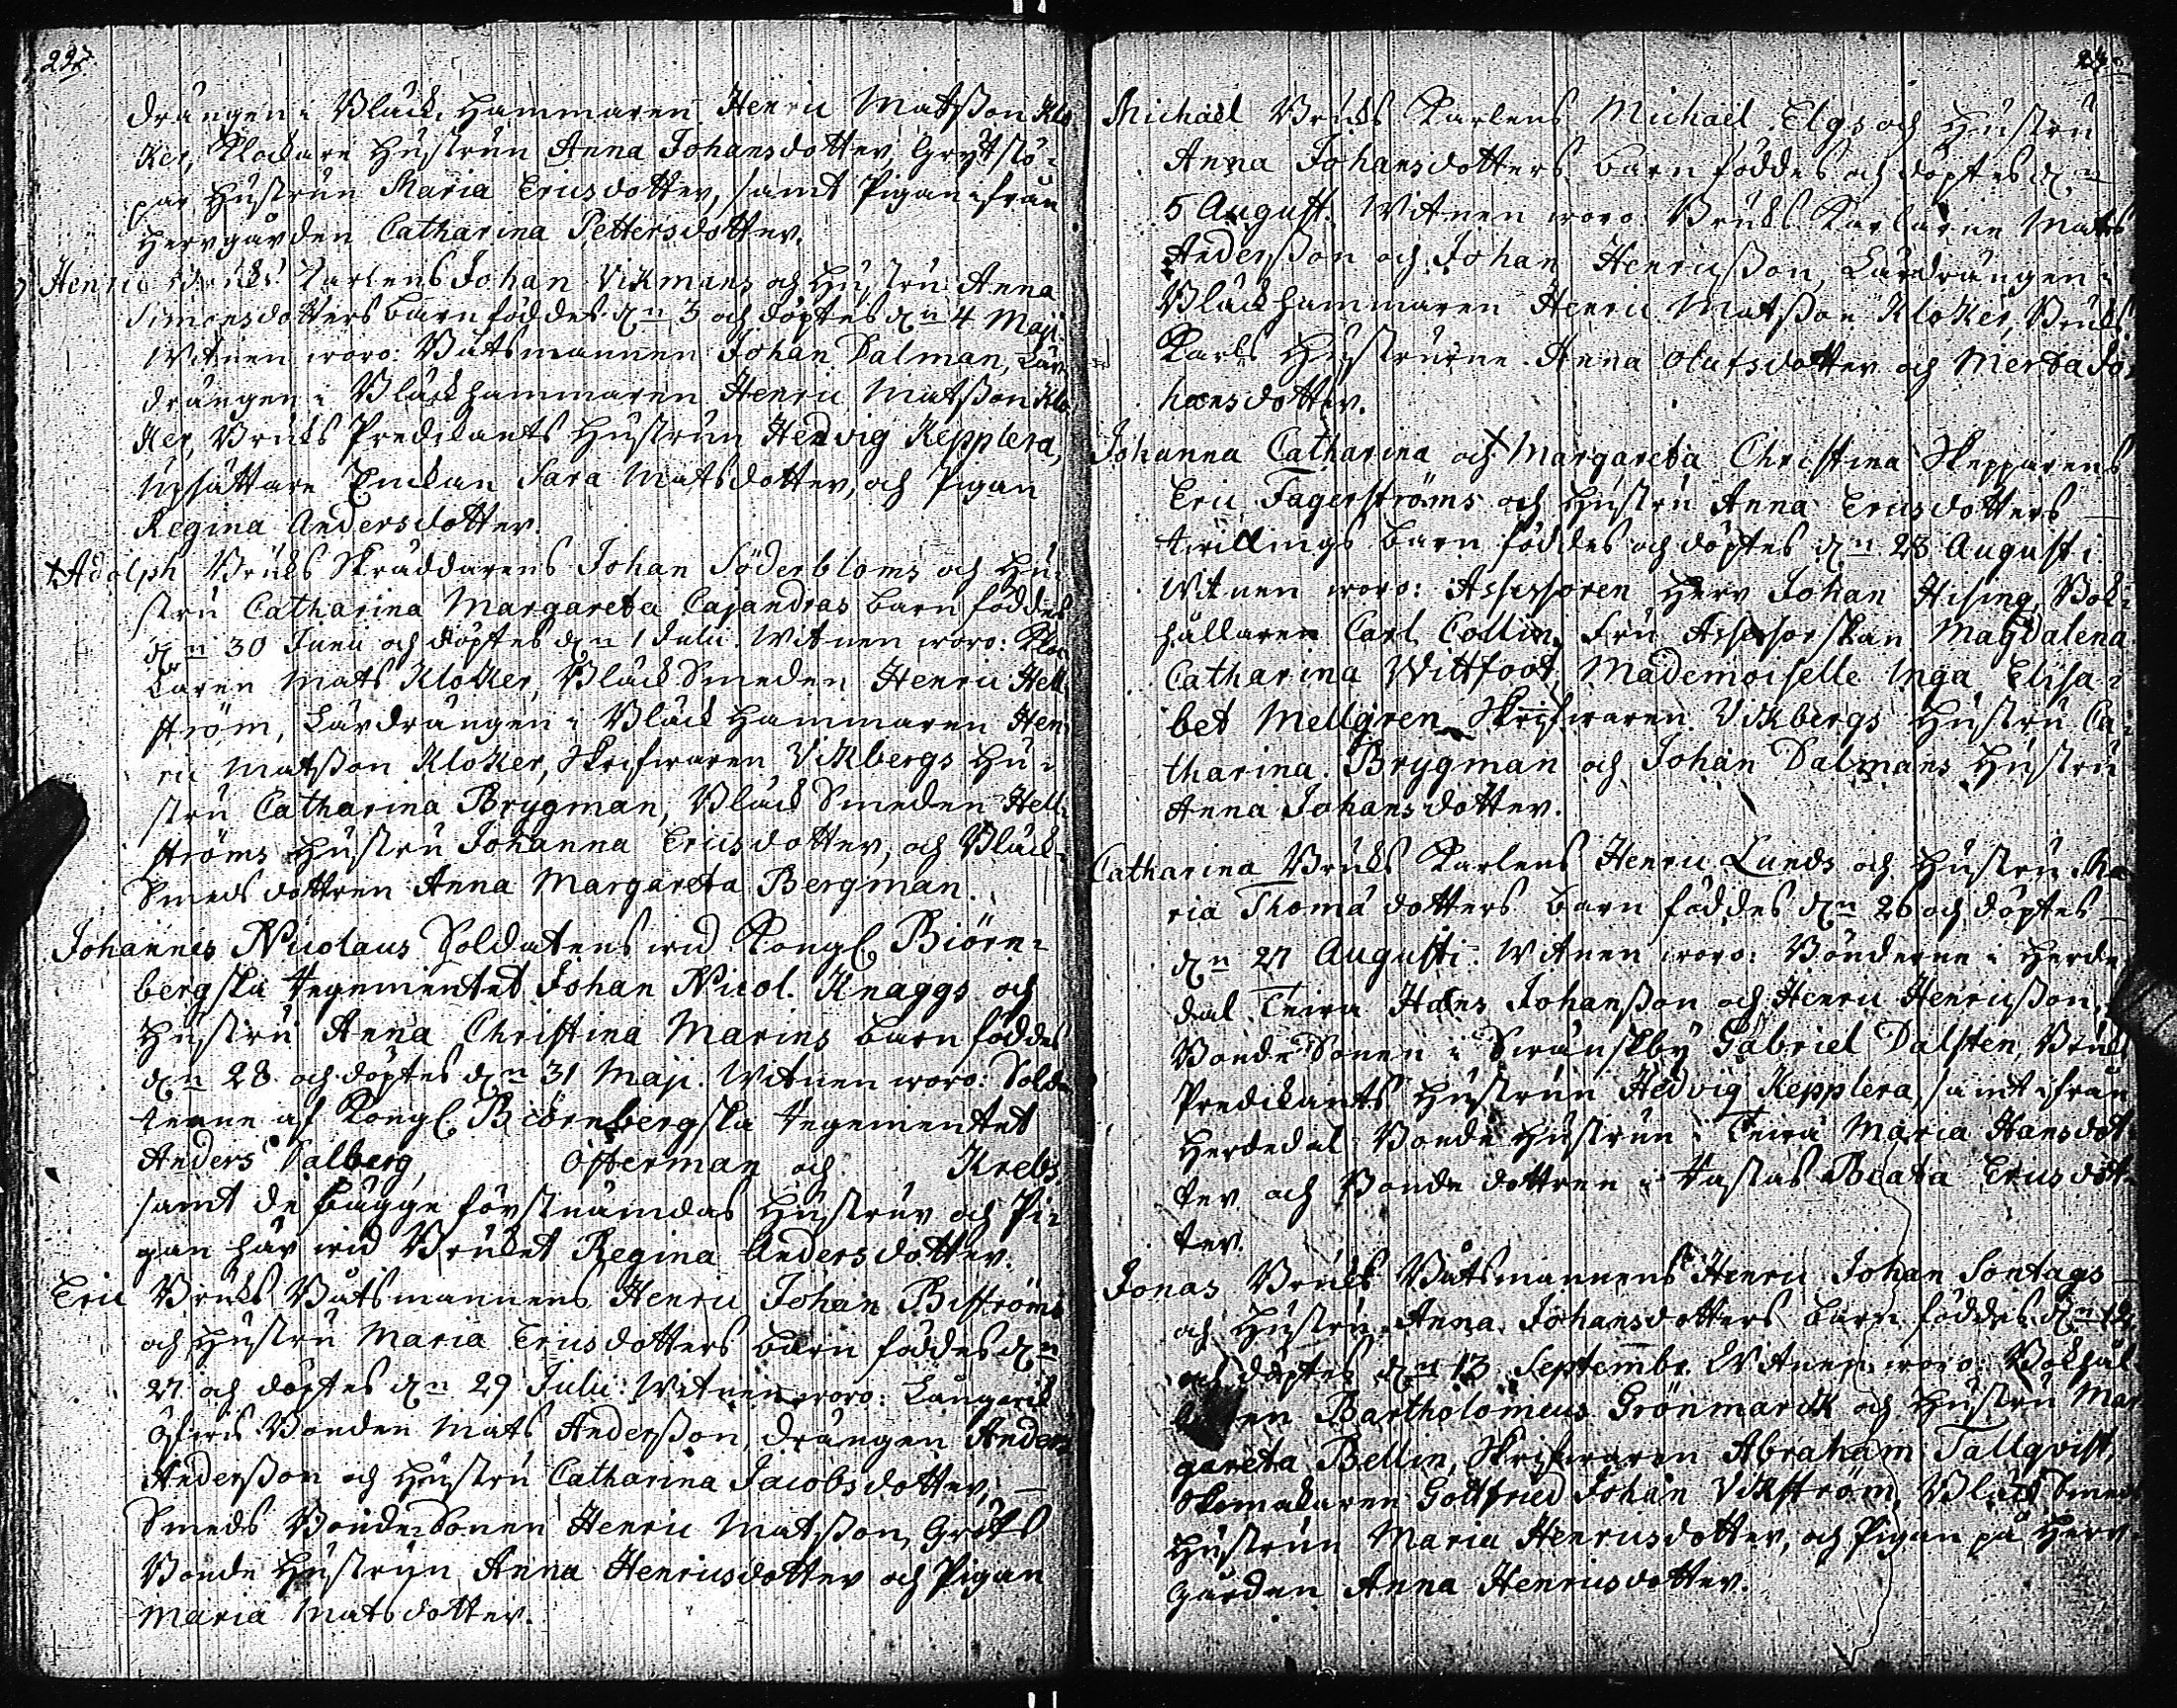 drängen i Bläck hammaren Henric Matsson Klo
Ker, Klockare hustrun Anna Johansdotter, Grytstö-
par hustrun Maria Ericsdotter, samt Pigan ifrån
herrgården Catharina Pettersdotter.
Henric Bruks Karlens Johan Vikmans och hustru Anna
Simonsdotters barn föddes dn 3 och döptes dn 4 Maji
Witnen woro: Båtsmannen Johan Dalman, Lär
drängen i Bläckhammaren Henric Matsson Klo
Ker, Bruks Predikants hustrun Hedvig Kepplera,
Upsättare Enckan Sara Matsdotter, och Pigan
Regina Andersdotter.
Adolph Bruks Skräddarens Johan Söderbloms och Hu-
stru Catharina Margareta Cajandras barn föddes
dn 30 Junii och döptes dn 1 Julii. Witnen woro: Kloc
karen Mats Kloker, Bläck Smeden Henric Hell
ström, Lärdrängen i Bläck hammaren Hen
ric Matsson Kloker, Skrifwaren Vikbergs Hu-
stru Catharina Brygman, Bläck Smeden Hell-
ströms hustru Johanna Ericsdotter, och Bläck-
Smeds dottren Anna Margareta Bergman.
Johannes Nicolaus Soldatens wid Kongl. Biörne-
bergska Regementet Johan Nicol. Knaggs och
hustru Anna Christina Marins barn föddes
dn 28 och döptes dn 31 Maji. Witnen woro: Solda
terne af Kongl. Biörnebergska Regementet
Anders Salberg, Österman och Krebs
samt de bägge förstnämdas hustrur och Pi-
gan här wid Bruket Regina Andersdotter.
Eric Bruks Båtsmannens Henric Johan Biströms
och hustru Maria Ericsdotters barn föddes dn
27 och döptes dn 29 Julii. Witnen woro: Långwik
Öfwis Bonden Mats Andersson, drängen Anders
Andersson och hustru Catharina Jacobsdotter,
Smeds Bonde Sonen Henric Matsson, Gräfs
Bonde hustrun Anna Henricsdotter och Pigan
Maria Matsdotter.
Michaël Bruks Karlens Michaël Elgs och hustru
Anna Johansdotters barn föddes och döptes dn
5 August. Witnen woro: Bruks Karlarne Mats
Andersson och Johan Henricsson, Lärdrängen i
Bläckhammaren Henric Matsson Kloker, Bruks
Karls hustrurne Anna Olufsdotter och Mertha Jo-
hansdotter.
Johanna Catharina och Margareta Christina Skepparens
Eric Fagerströms och hustru Anna Ericsdotters
twillings barn föddes och döptes dn 23 Augusti
Witnen woro: Assessoren Herr Johan Hising, Bok-
hållaren Carl Collin, Fru Assessorskan Magdalena
Catharina Wittfoot, Mademoiselle Inga Elisa-
bet Mellgren, Skrifwaren Vikbergs hustru Ca-
tharina Brygman och Johan Dalmans hustru
Anna Johansdotter.
Catharina Bruks Karlens Henric Lunds och hustru Ma
ria Thomædotters barn föddes dn 26 och döptes
dn 27 Augusti. Witnen woro: Bönderne i Herde
dal Teira Hans Johansson och Henric Henricsson,
Bonde Sonen i Swänskby Gabriel Dalsten, Bruks
Predikants hustrun Hedvig Kepplera, samt ifrån
Herdedal Bonde hustrun i Teira Maria Hansdot-
ter och Bonde dottren i Rastas Beata Ericsdot-
ter.
Jonas Bruks Båtsmannens Henric Johan Sontags
och hustru Anna Johansdotters barn föddes dn 12
och döptes dn 13 Septembr. Witnen woro: Bokhål
Bartholomeus Grönmarck och hustru Mar
gareta Bellin, Skrifwaren Abraham Tallqvist,
Skomakaren Gottfried Johan Vikström, Bläck Smeds
hustrun Maria Henricsdotter, och Pigan på Herr
gården Anna Henricsdotter.